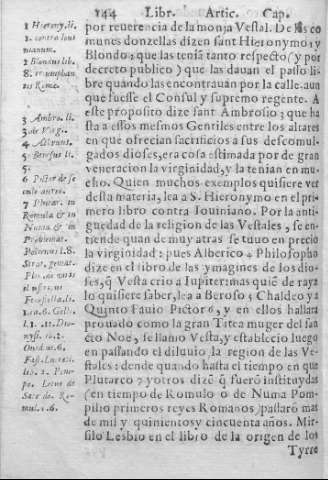 144 Libr. Artic. Cap.
por reuerencia de la monja Vestal. De las co
munes donzellas dizen sant Hieronymo 1 y
Blondo 2 que las tenia tanto respecto (y por
decreto publico) que las dauan el passo li-
bre quando las encontrauan por la calle. aun
que fuesse el Consul y supremo regente. A
este proposito dize sant Ambrosio 3 que ha
sta a essos mesmos Gentiles entre los altares
en que ofrecian sacrificios a sus descomul-
gados dioses, era cosa estimada por de gran
veneracion la virginidad, y la tenian en mu-
cho. Quien muchos exemplos quisiere ver
desta materia, lea a S. Hieronymo en el pri-
mero libro contra Iouiniano. Por la anti-
guedad de la religion de las Vestales, se en-
tiende quan de muy atras se tuuo en precio
la virginidad: pues Alberico 4 Philosopho
dize en el libro de las ymagines de los dio-
ses, q̃ Vesta crio a Iupiter: mas quiẽ de rayz
lo quisiere saber, lea a Beroso 5 Chaldeo y a
Quinto Fauio Pictor 6, y en ellos hallara
prouado como la gran Titea muger del san
cto Noe, se llamo Vesta, y establecio luego
en passando el diluuio, la region de las Ve-
stales: dende quando hasta el tiempo en que
Plutarco 7 y otros dizẽ q̃ fuerõ instituydas
(en tiempo de Romulo o de Numa Pom-
pilio primeros reyes Romanos) passarõ mas
de mil y quinientos y cincuenta años. Mir-
silo Lesbio en el libro de la origen de los
Tyrre
1 Hierony. li.
1. contra Ioui
nianum.
2 Blondus lib.
8. triumphan
tis Rome.
3 Ambro. li.
3 de Virgi.
4 Albricus.
5 Berosus li.
5.
6 Pictor de se
culo aureo.
7 Plutar. in
Romulo & in
Numa & in
Problemat.
Polienus l. 8.
Gelli.
l. 1. Dio-
Ouid.
Fast.
lib. 2.